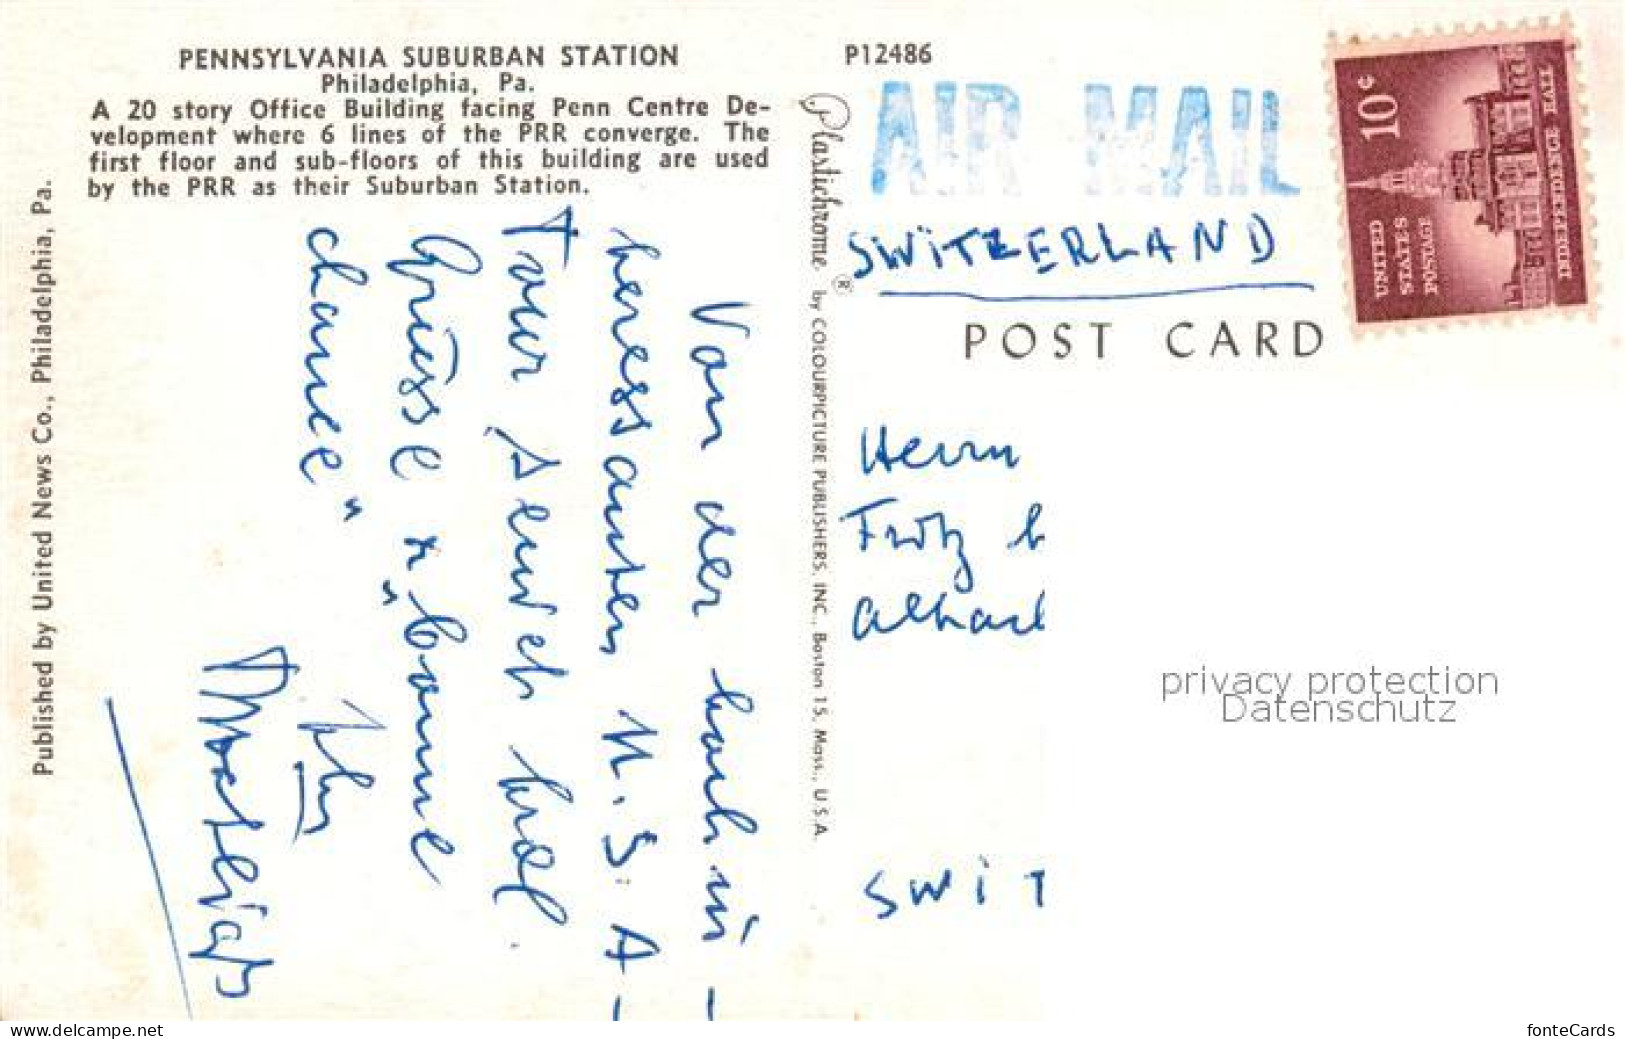 PENNSYLVANIA SUBURBAN STATION
Philadelphia, Pa.
A 20 story Office Building facing Penn Centre De-
velopment where 6 lines of the PRR converge. The
first floor and sub-floors of this building are used
by the PRR as their Suburban Station.
Published by United News Co., Philadelphia, Pa.
Von der hoch in-
teressanten U.S.A-
Tour sendet
Grüsse + "bonne
chance"
Plastichrome ® by COLOURPICTURE PUBLISHERS, INC., Boston 15, Mass., U.S.A.
P12486
AIR MAIL
SWITZERLAND
POST CARD
10¢
UNITED
STATES
POSTAGE
INDEPENDENCE HALL
Herrn
Fritz
SWIT
privacy protection
Datenschutz
www.delcampe.net
fonteCards